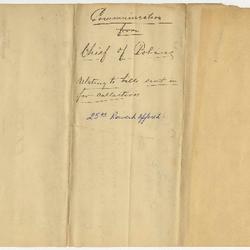 Communication
from
Chief of Police
relating to bills sent in
for collection
25th Reward Offered.